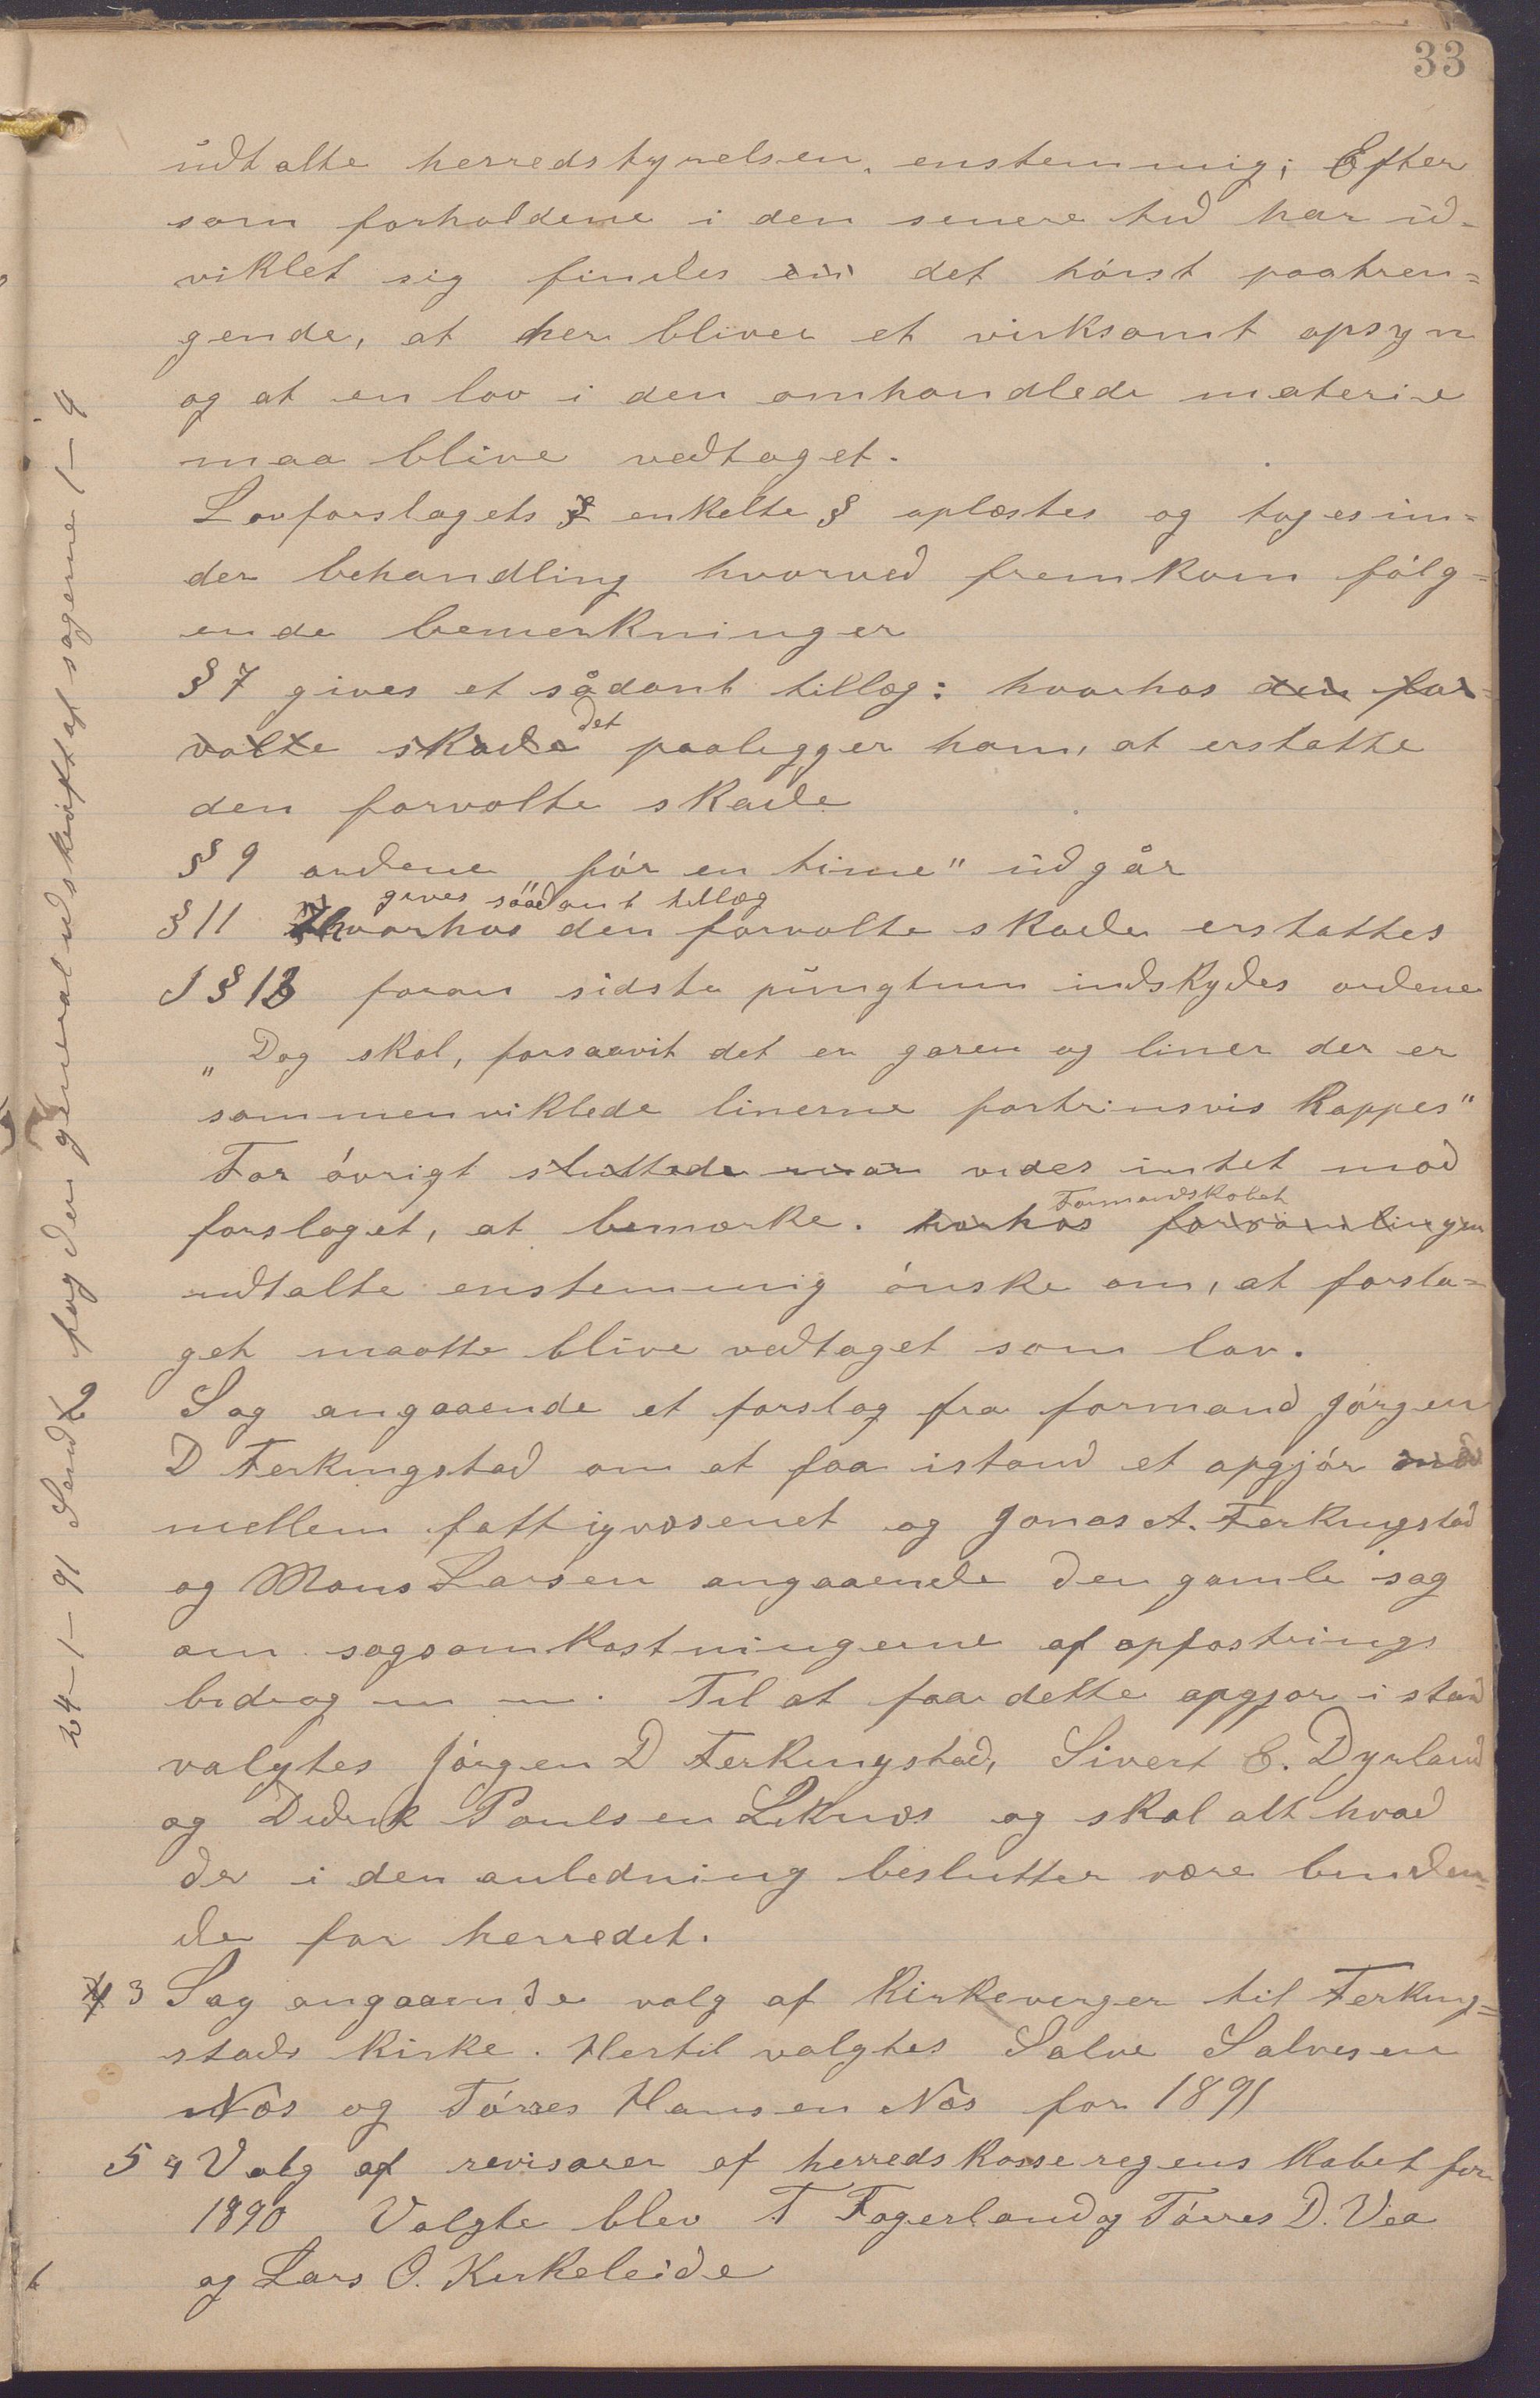 33
udtalte herredstyrelsen, enstemmig; Efter
som forholdene i den senere tid har ud-
viklet sig findes ein det hóist paatren=
gende, at her bliver et virksomt opsyn
og at en lov i den omhandlede materie
maa blive vedtaget.
Lovforslagets § enkelte § oplæstes og toges un=
der behandling hvorved fremkom fólg=
ende bemerkninger
§ 7 gives et sådant tillæg: hvorhos den for-
det
voldte skade paaligger ham, at erstatte
den forvolte skade
§ 9 ordene „fór en time" udgår
gives såadant tillæg
§ 11 hvorhos den forvolte skade erstattes
I § 13 foran sidste pungtum indskydes ordene
„Dog skal, forsaavit det er garen og liner der er
sammenviklede linerne fortrinsvis kappes"
For óvrigt sluttede man vides intet mod
Formandskabet
forslaget, at bemærke. hvorhos forsamlingen
udtalte enstemmig ónske om, at forsla=
get maatte blive vedtaget som lov.
2 Sag angaaende et forslag fra formand Jórgen
D Ferkingstad om at faa istand et opgjór mod
mellem fattigvæsenet og Jonas A. Ferkingstad
og Mons Larsen angaaende den gamle sag
om sagsomkostningerne af opfostrings
bidrag m m. Til at faa dette opgjor i stand
valgtes Jórgen D Ferkingstad, Sivert E. Dyrland
og Didrik Poulsen Liknes og skal alt hvad
de i den anledning beslutter være binden=
de for herredet.
4 3 Sag angaaende valg af Kirkeverger til Ferking=
stads kirke. Hertil valgtes Salve Salvesen
Næs og Tórres Hansen Næs for 1891
5 4 Valg af revisorer af herredskasseregenskabet for
1890 Valgte blev T Fagerland og Tórres D. Vea
og Lars O. Kirkeleide
24-1-91 Sendt fogden general udskrift af sagerne 1-4